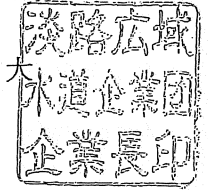 淡路広域
水道企業団
企業長印
大